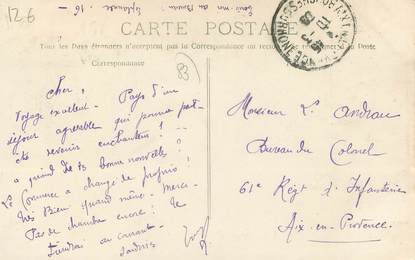 126
Esplanade - 16 -
CARTE POSTALE
Tous les Pays étrangers n'acceptent pas la Correspondance au Poste
Correspondance
83
Cher !
Voyage excellent. Pays d'un
séjour agréable qui pourra peut-
être revenir enchanteur ! --
à quand de tes bonnes nouvelles ?
Le Commerce a changé de proprio !
Très Bien quand même. Merci -
Pas de chambre encore. Te
tiendrai au courant -
Monsieur L. Andrau
Bureau du Colonel
61e Régt d'Infanterie
Aix-en-Provence.